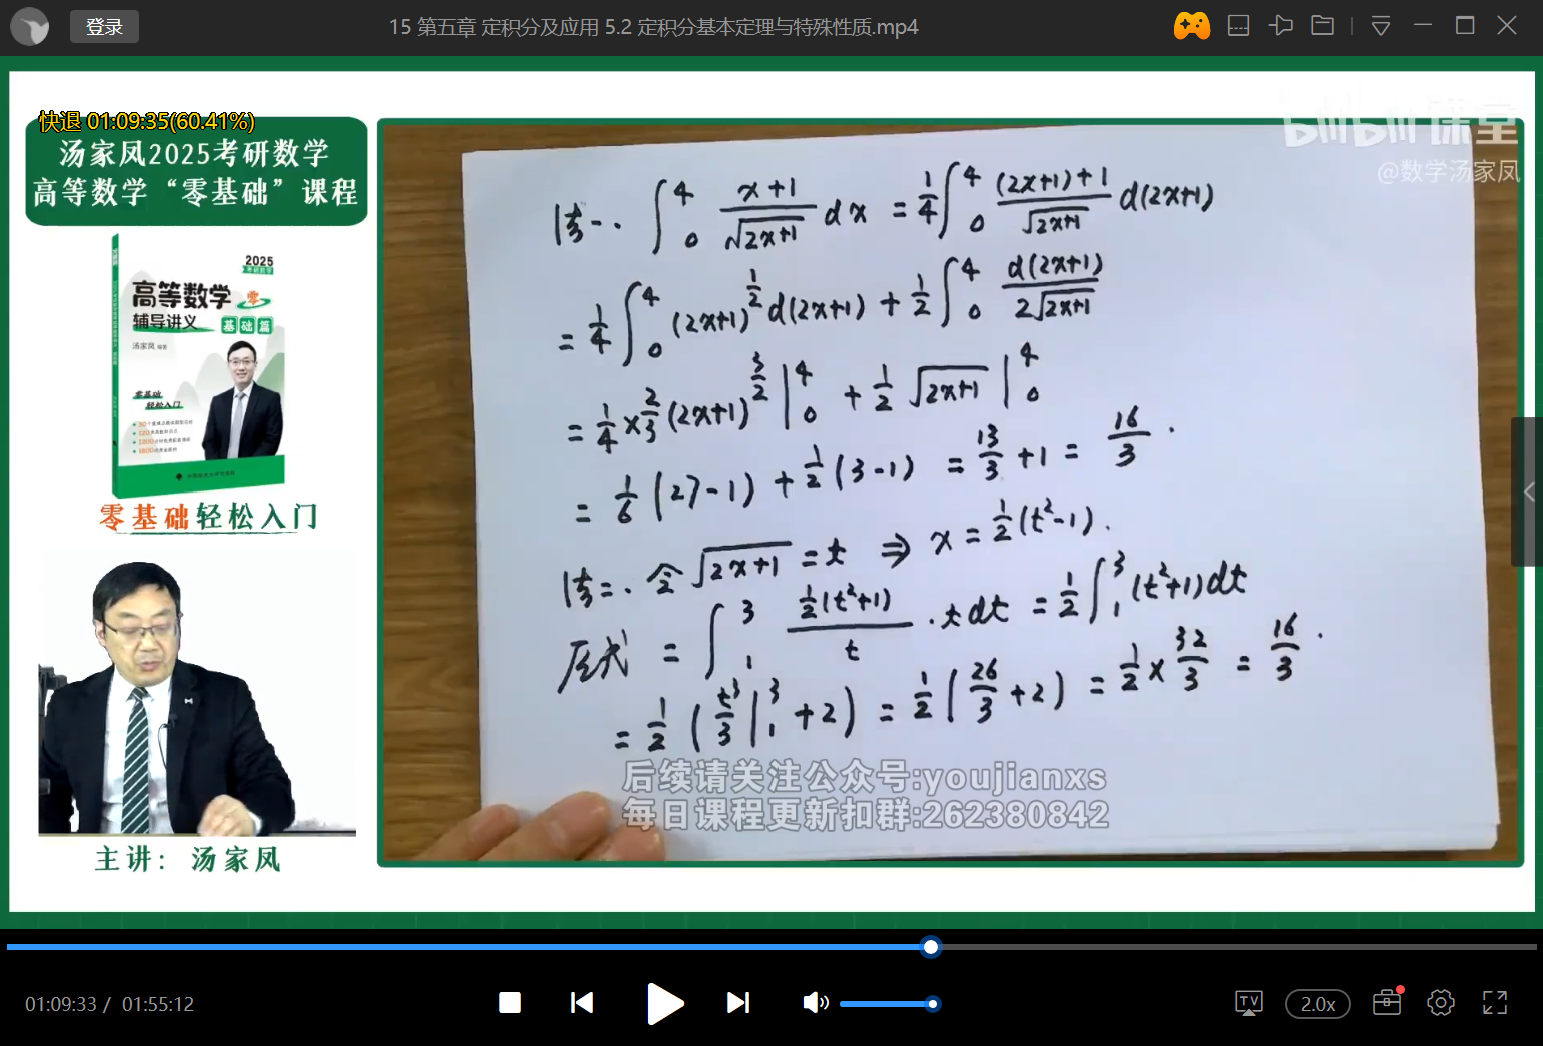 登录
15 第五章 定积分及应用 5.2 定积分基本定理与特殊性质.mp4
快退 01:09:35(60.41%)
汤家凤2025考研数学
高等数学“零基础”课程
2025
考研数学
高等数学 零
辅导讲义 基础篇
汤家凤 编著
零基础
轻松入门
零基础轻松入门
主讲：汤家凤
bilibili 课堂
@数学汤家凤
法一. ∫₀⁴ (x+1)/√(2x+1) dx = 1/4 ∫₀⁴ ((2x+1)+1)/√(2x+1) d(2x+1)
= 1/4 ∫₀⁴ (2x+1)^(1/2) d(2x+1) + 1/2 ∫₀⁴ d(2x+1)/(2√(2x+1))
= 1/4 × 2/3 (2x+1)^(3/2) |₀⁴ + 1/2 √(2x+1) |₀⁴
= 1/6 (27-1) + 1/2 (3-1) = 13/3 + 1 = 16/3.
法二. 令 √(2x+1) = t ⇒ x = 1/2 (t²-1).
原式 = ∫₁³ (1/2 (t²+1))/t · t dt = 1/2 ∫₁³ (t²+1) dt
= 1/2 (t³/3 |₁³ + 2) = 1/2 (26/3 + 2) = 1/2 × 32/3 = 16/3.
后续请关注公众号:youjianxs
每日课程更新扣群:262380842
01:09:33 / 01:55:12
TV
2.0x